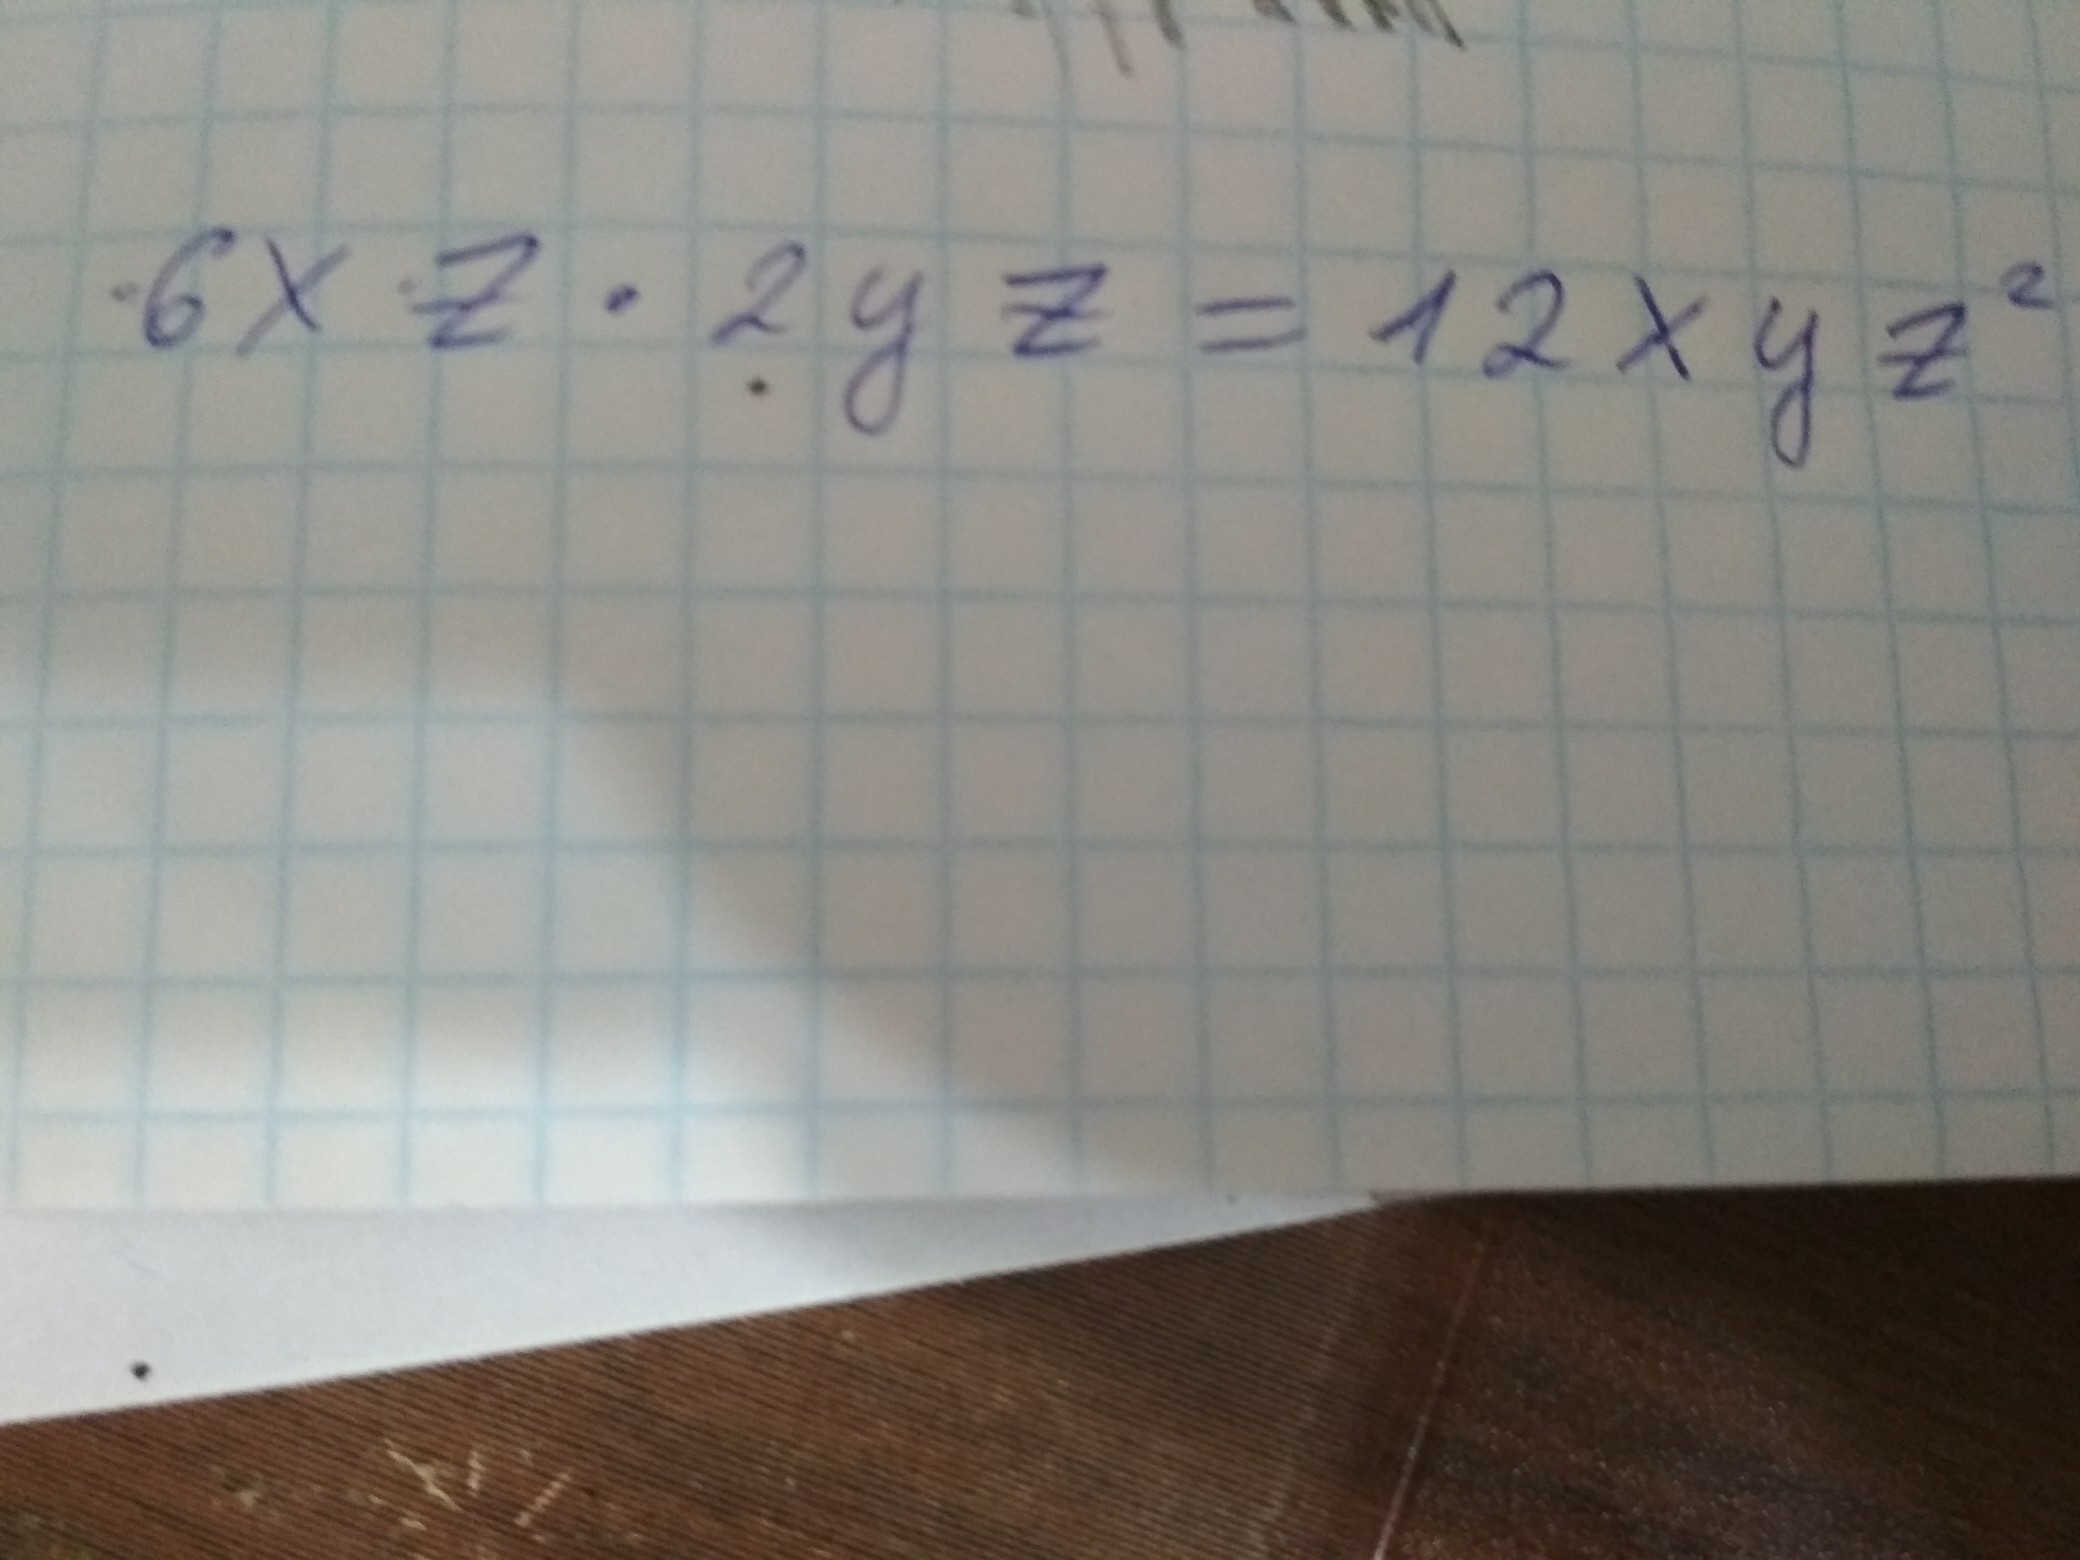 6xz · 2yz = 12xyz²